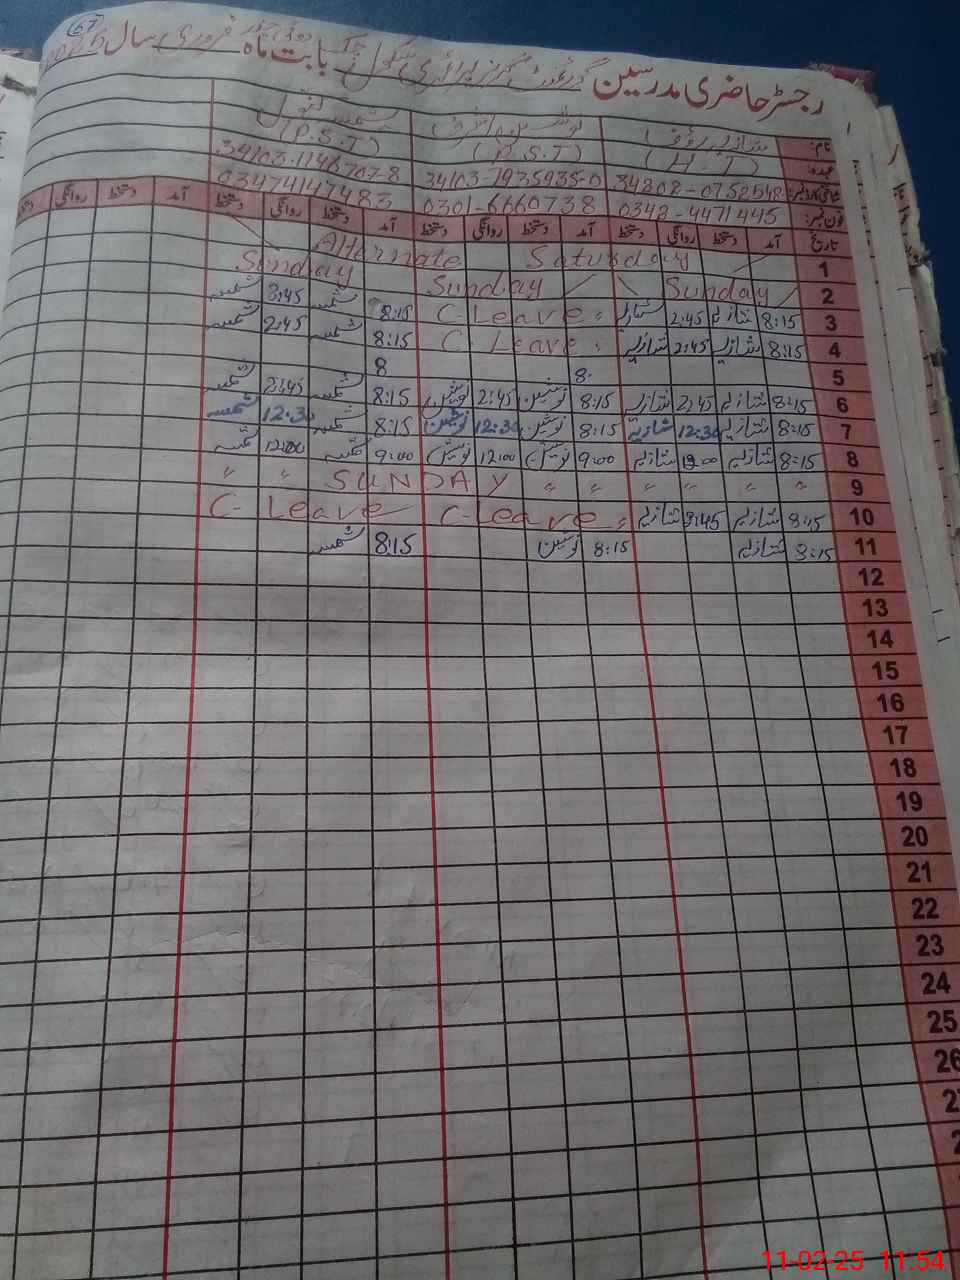 رجسٹر حاضری مدرسین گورنمنٹ گرلز پرائمری سکول بابت ماہ فروری سال
67
نام: شازیہ رؤف نوشین اشرف شمسہ
عہدہ: (H.T) (P.S.T) (P.S.T)
شناختی کارڈ نمبر: 34802-0752548 34103-7935935-0 34103-1146707-8
فون نمبر: 0348-4471445 0301-6660738 03474147483
تاریخ آمد دستخط روانگی دستخط آمد دستخط روانگی دستخط آمد دستخط روانگی دستخط آمد دستخط روانگی
1 Alternate Saturday
2 Sunday Sunday Sunday
3 8:15 شازیہ 2:45 شازیہ C-Leave 8:15 شمسہ 2:45 شمسہ
4 8:15 شازیہ 2:45 شازیہ C-Leave 8:15 شمسہ 2:45 شمسہ
5 8: 8
6 8:15 شازیہ 2:45 شازیہ 8:15 نوشین 2:45 نوشین 8:15 شمسہ 2:45 شمسہ
7 8:15 شازیہ 12:30 شازیہ 8:15 نوشین 12:30 نوشین 8:15 شمسہ 12:30 شمسہ
8 8:15 شازیہ 12:00 شازیہ 9:00 نوشین 12:00 نوشین 9:00 شمسہ 12:00 شمسہ
9 " " " " " " SUNDAY " "
10 8:15 شازیہ 2:45 شازیہ C-Leave C-Leave
11 8:15 شازیہ 8:15 نوشین 8:15 شمسہ
12
13
14
15
16
17
18
19
20
21
22
23
24
25
26
11-02-25 11:54